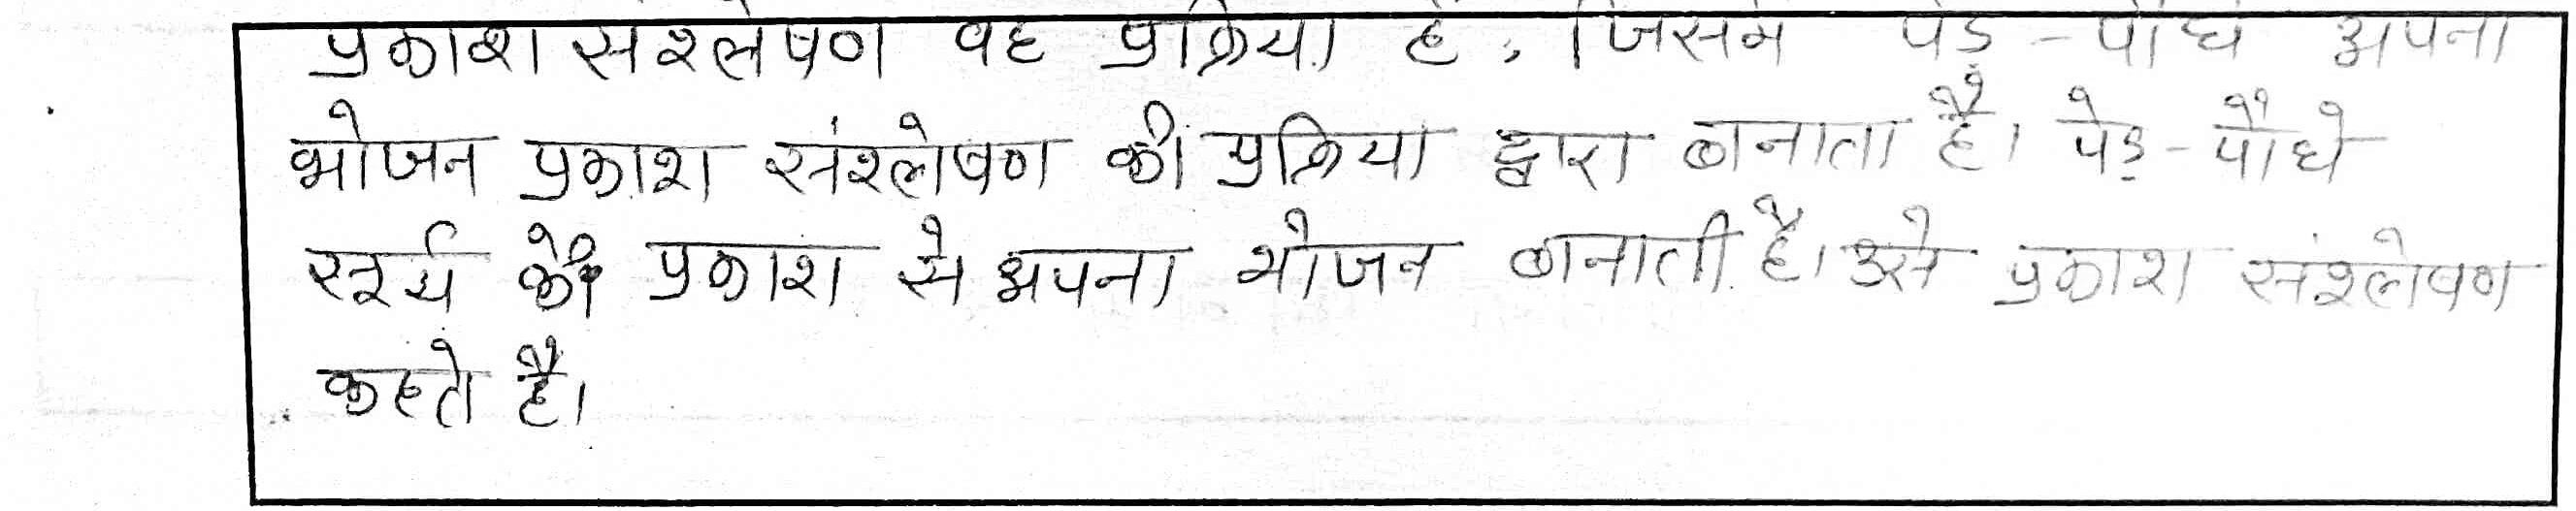 प्रकाश संश्लेषण वह प्रक्रिया है, जिसमें पेड़-पौधे अपना
भोजन प्रकाश संश्लेषण की प्रक्रिया द्वारा बनाता है। पेड़-पौधे
सूर्य की प्रकाश से अपना भोजन बनाती है। उसे प्रकाश संश्लेषण
कहते है।